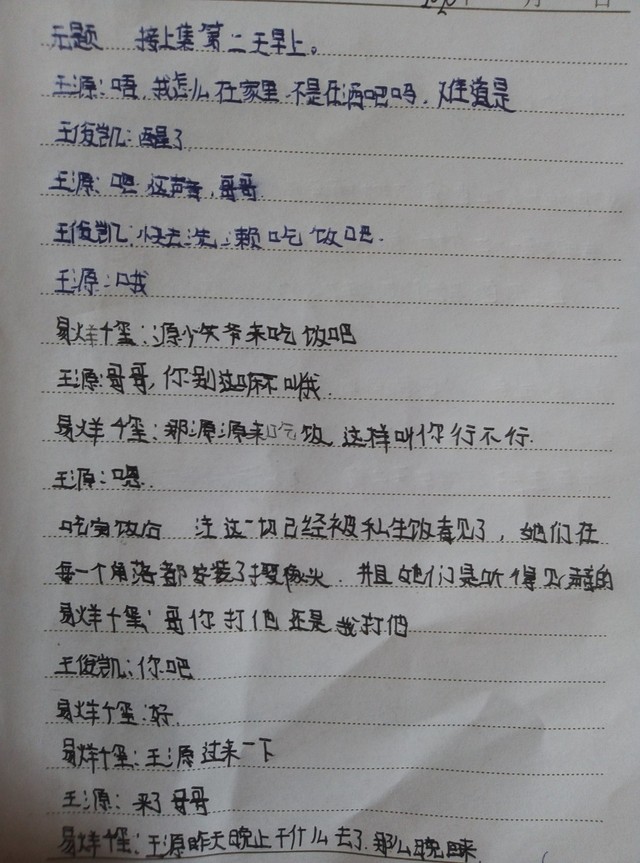 无题 接上集第二天早上。
王源:唔,我怎么在家里不是在酒吧吗,难道是
王俊凯:醒了
王源:嗯 这声音,哥哥
王俊凯:快去洗漱吃饭吧.
王源:哦
易烊千玺:源少爷来吃饭吧
王源:哥哥,你别这么叫我.
易烊千玺:那源源来吃饭,这样叫你行不行.
王源:嗯.
吃完饭后 注这一切已经被私生饭看见了,她们在
每一个角落都安装了摄像头.并且她们是听得见声音的
易烊千玺:哥你打他还是我打他
王俊凯:你吧
易烊千玺:好.
易烊千玺:王源过来一下
王源:来了哥哥
易烊千玺:王源昨天晚上干什么去了.那么晚回来